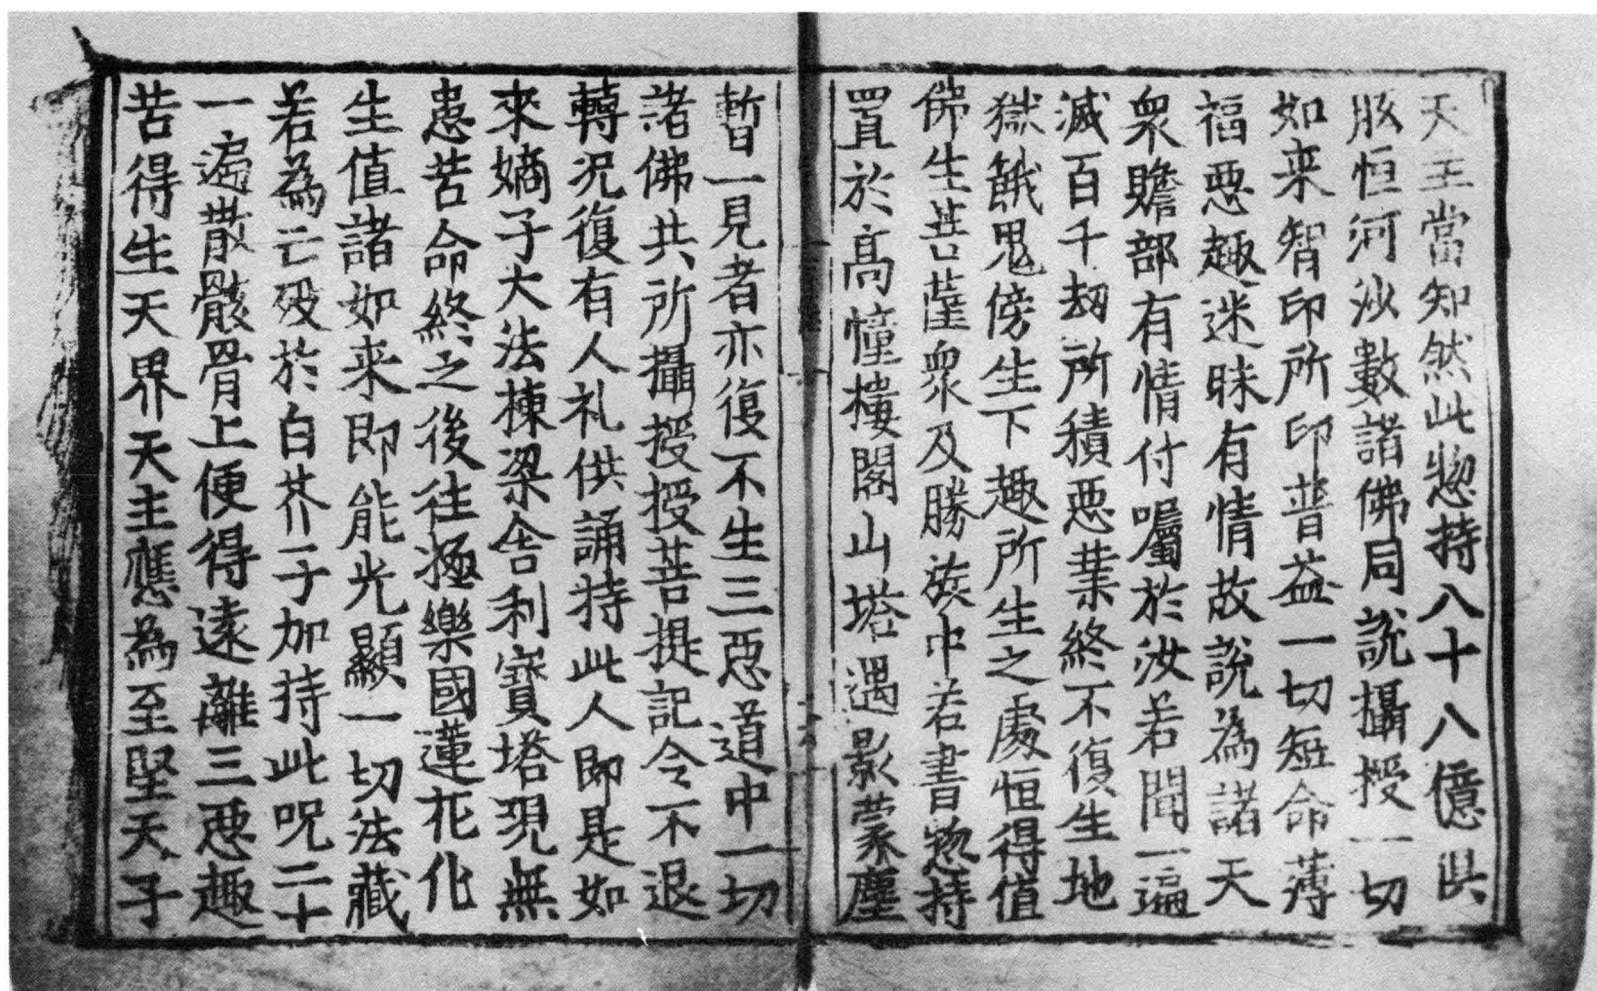 天主當知然此惣持八十八億𠔏
胝恒河沙數諸佛同説攝授一切
如来智印所印普益一切短命薄
福惡趣迷昧有情故説為諸天
衆贍部有情付囑於汝若聞一遍
滅百千劫所積惡業終不復生地
獄餓鬼傍生下趣所生之處恒得值
佛生菩薩衆及勝族中若書惣持
置於高憧樓閣山塔遇影蒙塵
暫一見者亦復不生三惡道中一切
諸佛共所攝授授菩提記令不退
轉况復有人礼供誦持此人即是如
來嫡子大法棟梁舍利寶塔現無
患苦命終之後往極樂國蓮花化
生值諸如来即能光顯一切法藏
若為亡歿於白芥子加持此呪二十
一遍散骸骨上便得遠離三惡趣
苦得生天界天主應為至堅天子